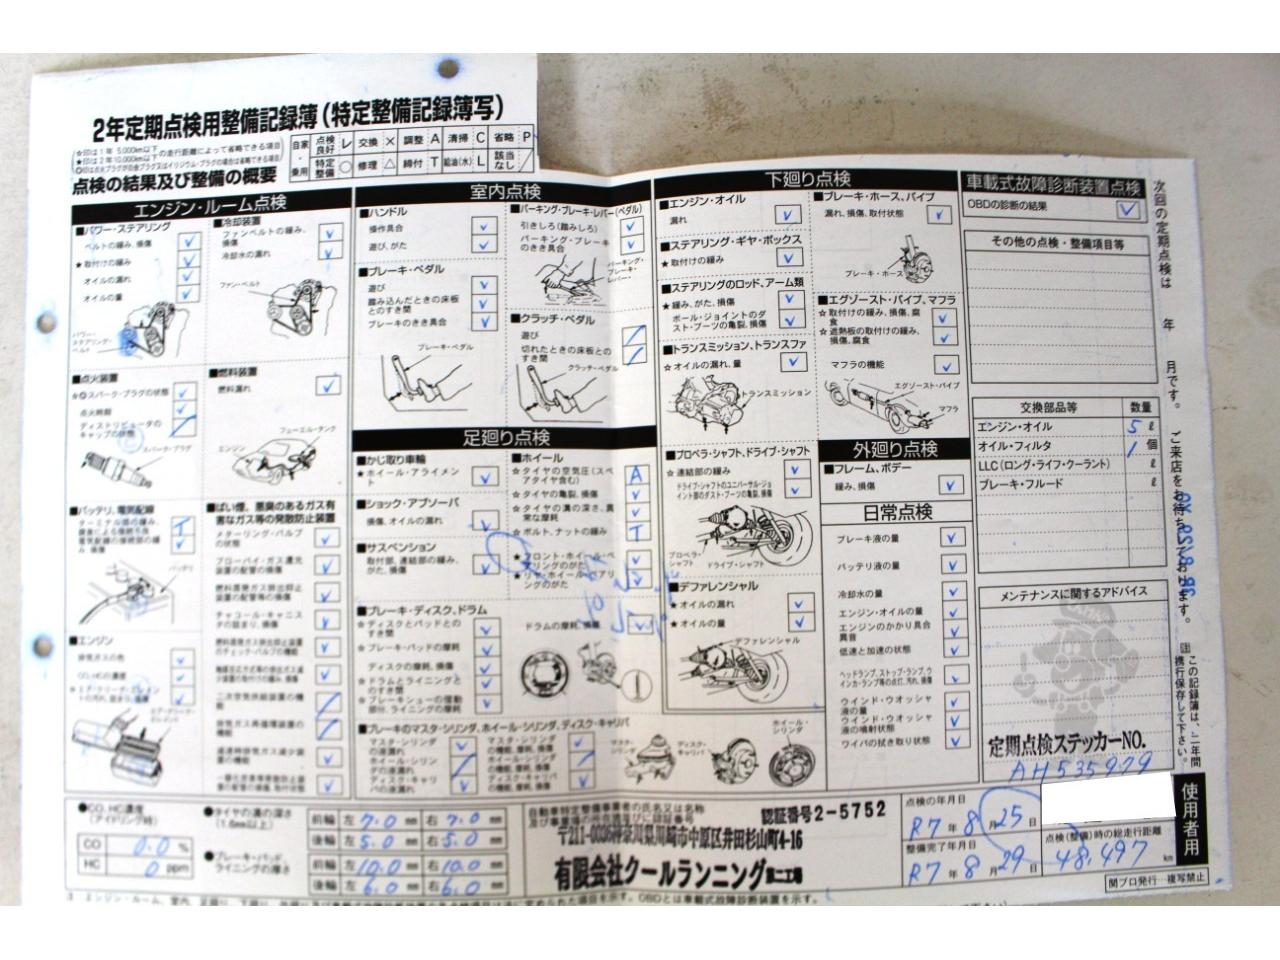 2年定期点検用整備記録簿(特定整備記録簿写)
☆印は1年 5,000km以下
★印は2年10,000km以下の走行距離によって省略できる項目
自家・乗用
点検良好 レ 交換 × 調整 A 清掃 C 省略 P
特定整備 ○ 修理 △ 締付 T 給油(水) L 該当なし /
点検の結果及び整備の概要
エンジン・ルーム点検
■パワー・ステアリング
ベルトの緩み、損傷
★取付けの緩み
オイルの漏れ
オイルの量
パワー・ステアリング・ベルト
■冷却装置
ファンベルトの緩み、損傷
冷却水の漏れ
ファン・ベルト
■点火装置
スパーク・プラグの状態
点火時期
ディストリビュータのキャップの状態
スパーク・プラグ
■燃料装置
燃料漏れ
エンジン
フューエル・タンク
■バッテリ、電気配線
T
バッテリ
■ばい煙、悪臭のあるガス有害なガス等の発散防止装置
メターリング・バルブの状態
ブローバイ・ガス還元装置の配管の損傷
燃料蒸発ガス排出抑止装置の配管等の損傷
チャコール・キャニスタの詰まり、損傷
■エンジン
排気ガスの色
CO、HCの濃度
室内点検
■ハンドル
操作具合
遊び、がた
■ブレーキ・ペダル
遊び
踏み込んだときの床板とのすき間
ブレーキのきき具合
ブレーキ・ペダル
■パーキング・ブレーキ・レバー(ペダル)
引きしろ(踏みしろ)
パーキング・ブレーキのきき具合
パーキング・ブレーキ・レバー
■クラッチ・ペダル
遊び
切れたときの床板とのすき間
クラッチ・ペダル
足廻り点検
■かじ取り車輪
☆ホイール・アライメント
■ショック・アブソーバ
損傷、オイルの漏れ
■サスペンション
取付部、連結部の緩み、がた、損傷
■ホイール
☆タイヤの空気圧(スペアタイヤ含む) A
☆タイヤの亀裂、損傷
☆タイヤの溝の深さ、異常な摩耗
☆ボルト、ナットの緩み T
★フロント・ホイール・ベアリングのがた
★リヤ・ホイール・ベアリングのがた
■ブレーキ・ディスク、ドラム
☆ディスクとパッドとのすき間
☆ブレーキ・パッドの摩耗
ディスクの摩耗、損傷
☆ドラムとライニングとのすき間
☆ブレーキシューの摺動部分、ライニングの摩耗
ドラムの摩耗、損傷
■ブレーキのマスタ・シリンダ、ホイール・シリンダ、ディスク・キャリパ
マスタ・シリンダの液漏れ
ホイール・シリンダの液漏れ
ディスク・キャリパの液漏れ
マスタ・シリンダの機能、摩耗、損傷
ホイール・シリンダの機能、摩耗、損傷
ディスク・キャリパの機能、摩耗、損傷
マスタ・シリンダ
ディスク・キャリパ
ホイール・シリンダ
下廻り点検
■エンジン・オイル
漏れ
■ステアリング・ギヤ・ボックス
★取付けの緩み
■ステアリングのロッド、アーム類
★緩み、がた、損傷
ボール・ジョイントのダスト・ブーツの亀裂、損傷
■トランスミッション、トランスファ
☆オイルの漏れ、量
トランスミッション
■プロペラ・シャフト、ドライブ・シャフト
☆連結部の緩み
ドライブ・シャフトのユニバーサル・ジョイント部のダスト・ブーツの亀裂、損傷
プロペラ・シャフト
ドライブ・シャフト
■デファレンシャル
★オイルの漏れ
★オイルの量
デファレンシャル
■ブレーキ・ホース、パイプ
漏れ、損傷、取付状態
ブレーキ・ホース
■エグゾースト・パイプ、マフラ
☆取付けの緩み、損傷、腐食
☆遮熱板の取付けの緩み、損傷、腐食
マフラの機能
エグゾースト・パイプ
マフラ
外廻り点検
■フレーム、ボデー
緩み、損傷
日常点検
ブレーキ液の量
バッテリ液の量
冷却水の量
エンジン・オイルの量
エンジンのかかり具合異音
低速と加速の状態
ヘッドランプ、ストップ・ランプ、ウインカ・ランプ等の点灯、汚れ、損傷
ウインド・ウオッシャ液の量
ウインド・ウオッシャ液の噴射状態
ワイパの拭き取り状態
車載式故障診断装置点検
OBDの診断の結果
その他の点検・整備項目等
交換部品等 数量
エンジン・オイル 5 ℓ
オイル・フィルタ 1 個
LLC(ロング・ライフ・クーラント) ℓ
ブレーキ・フルード ℓ
メンテナンスに関するアドバイス
定期点検ステッカーNO.
AH535979
次回の定期点検は 年 月です。 ご来店をお待ちしております。
この記録簿は、二年間携行保存して下さい。
使用者用
●CO、HC濃度(アイドリング時)
CO 0.0 %
HC 0 ppm
●タイヤの溝の深さ(1.6mm以上)
前輪 左 7.0 mm 右 7.0 mm
後輪 左 5.0 mm 右 5.0 mm
●ブレーキ・パッド、ライニングの厚さ
前輪 左 10.0 mm 右 10.0 mm
後輪 左 6.0 mm 右 6.0 mm
自動車特定整備事業者の氏名又は名称及び事業場の所在地並びに認証番号
認証番号2-5752
〒211-0036神奈川県川崎市中原区井田杉山町4-16
有限会社クールランニング第二工場
点検の年月日
R7年8月25日
整備完了年月日
R7年8月29日
点検(整備)時の総走行距離
48,497 km
関プロ発行 複写禁止